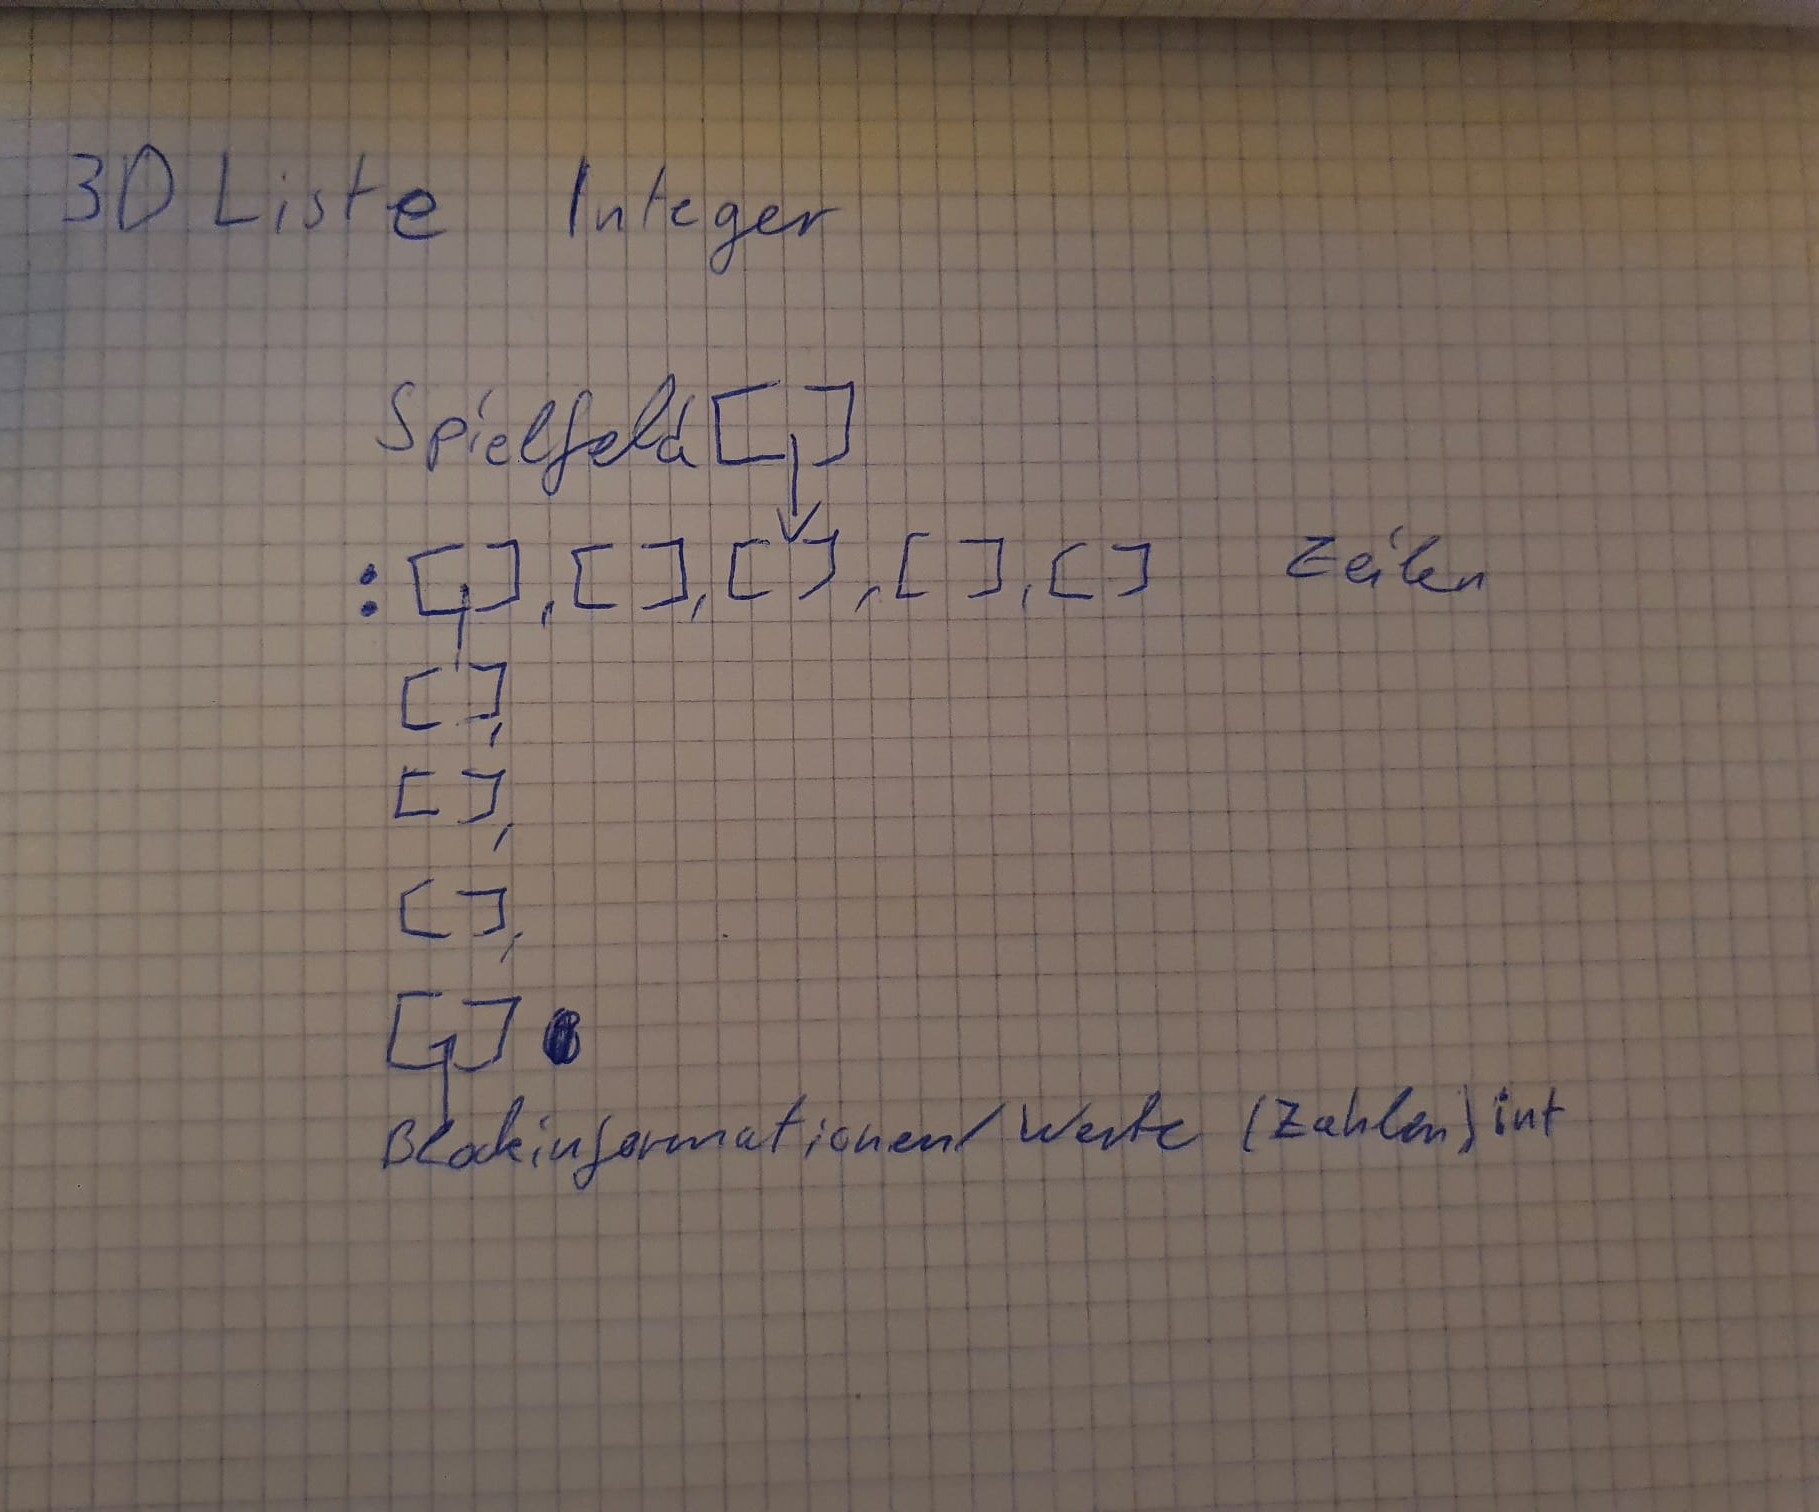 3D Liste Integer
Spielfeld[ ]
: [ ], [ ], [ ], [ ], [ ] Zeilen
[ ],
[ ],
[ ],
[ ]
Blockinformationen/Werte (Zahlen) int